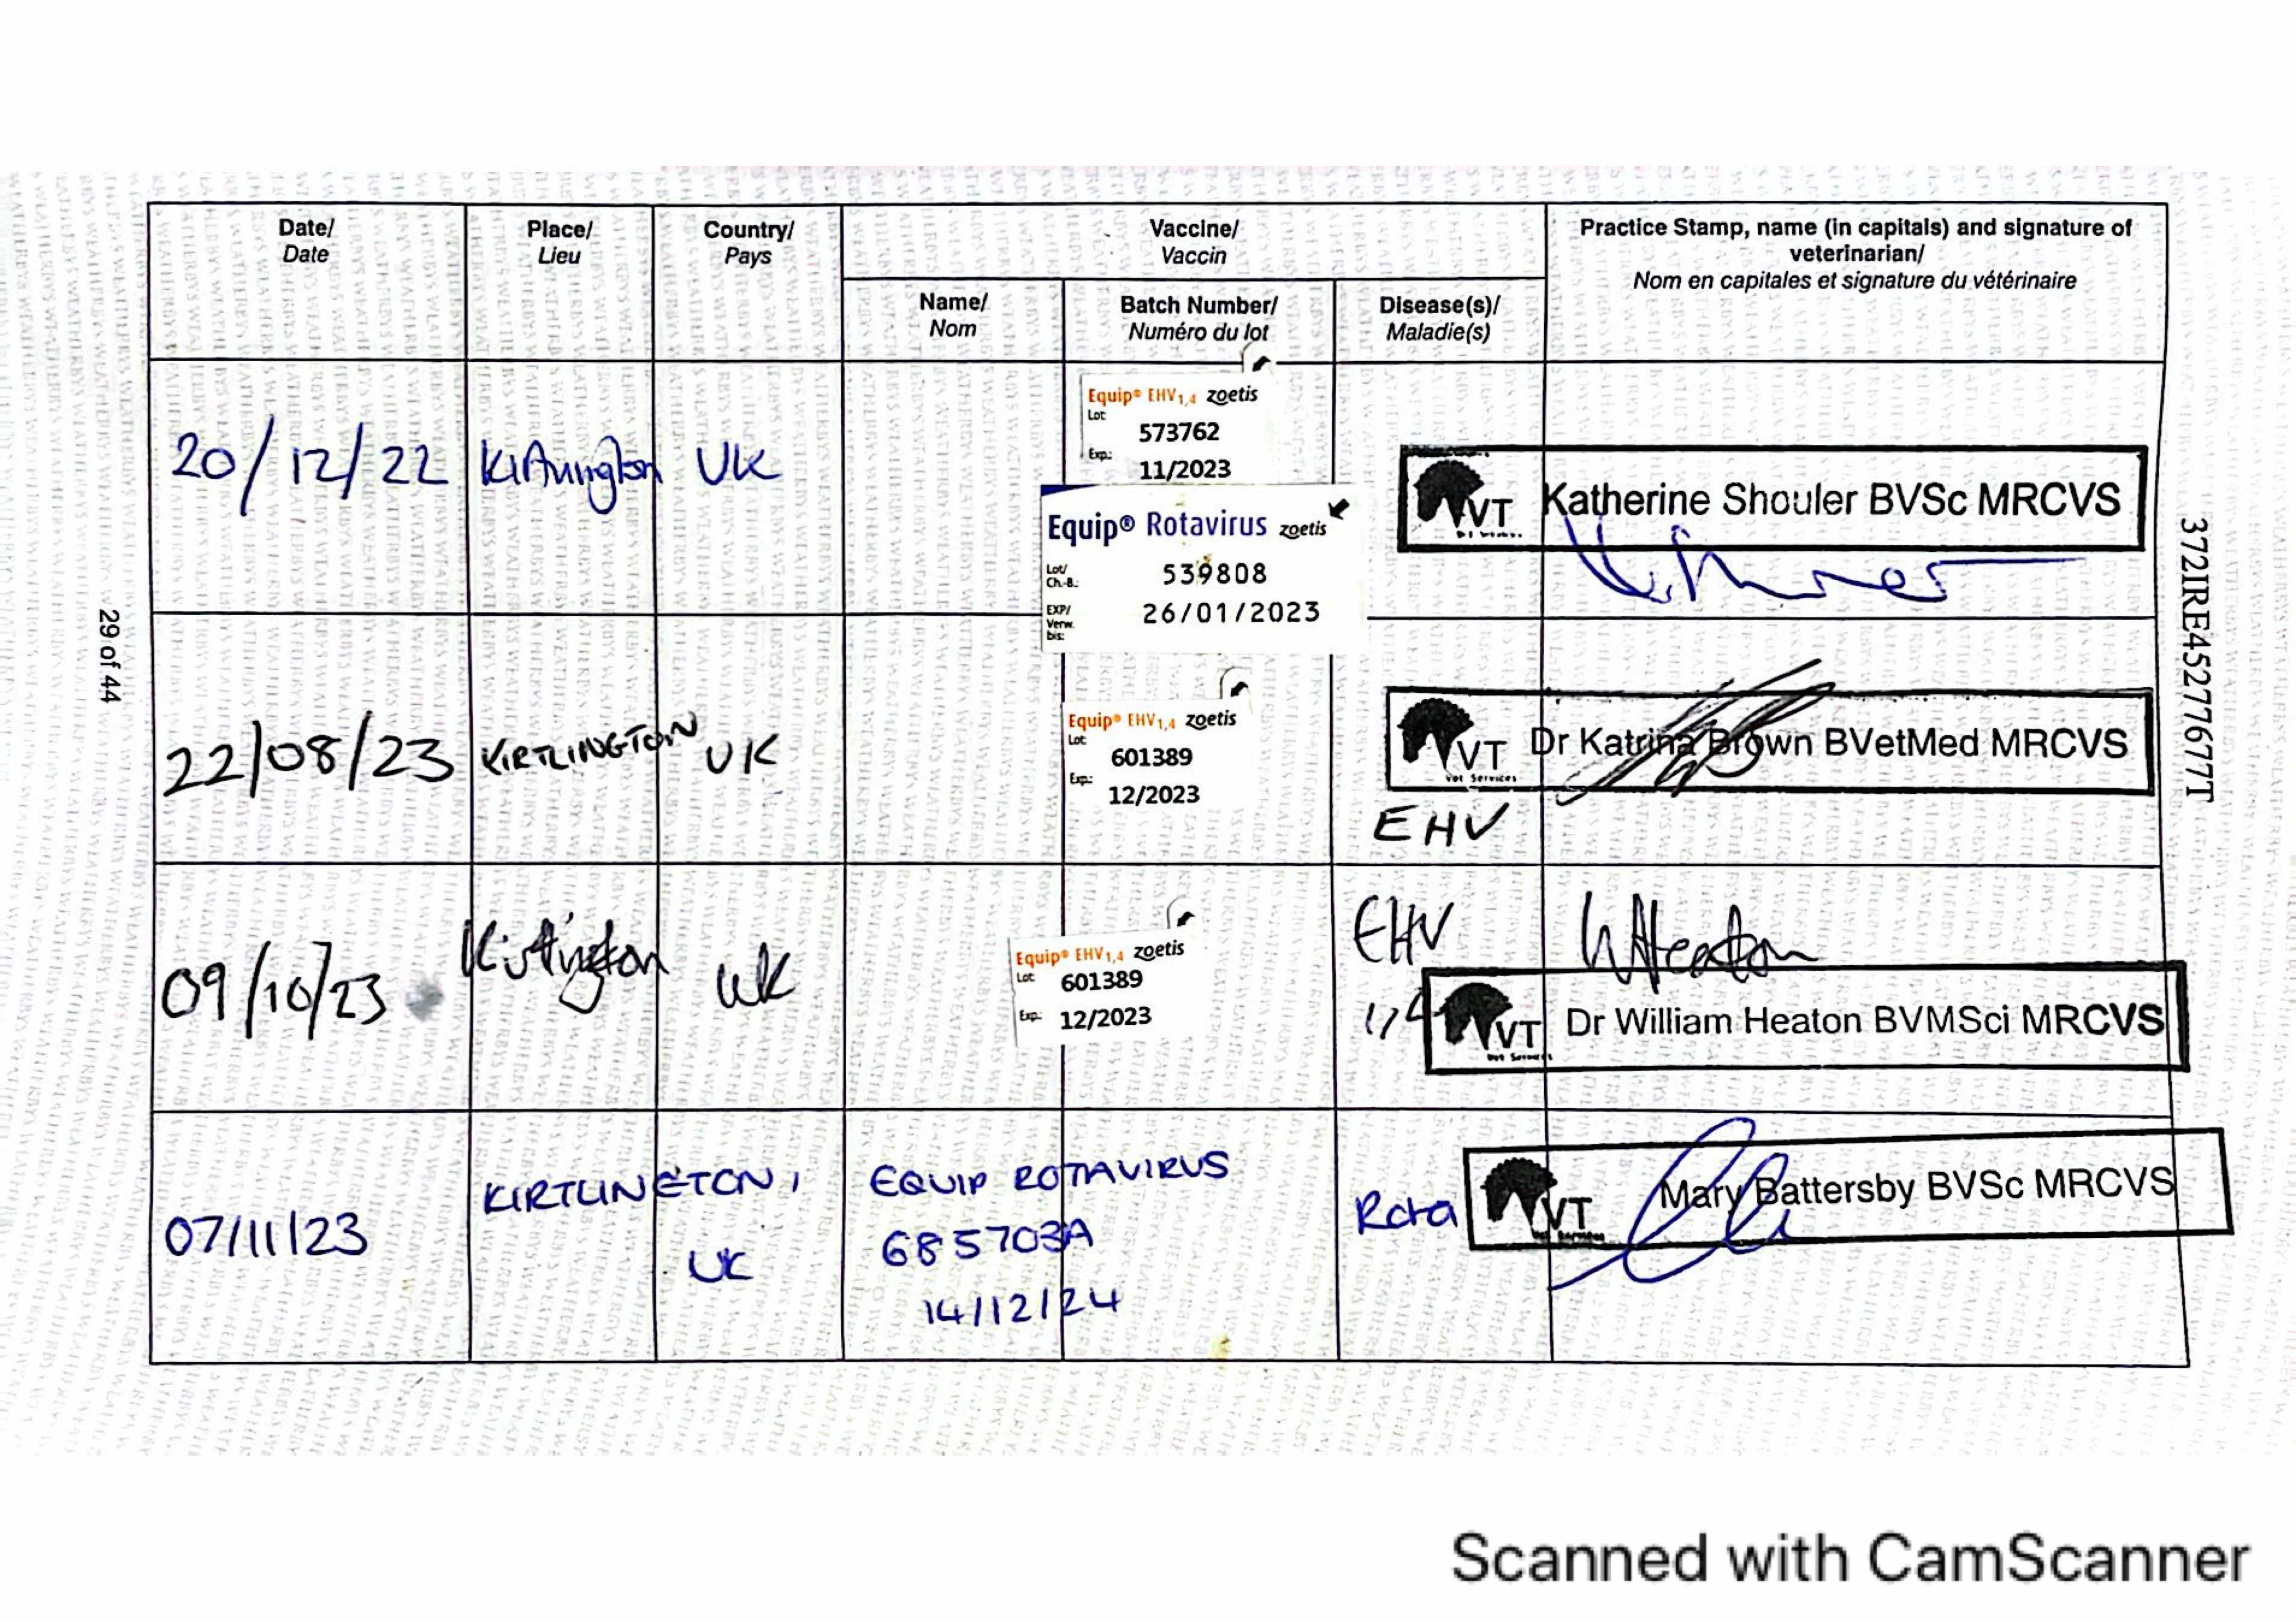 Date/
Date
Place/
Lieu
Country/
Pays
Vaccine/
Vaccin
Name/
Nom
Batch Number/
Numéro du lot
Disease(s)/
Maladie(s)
Practice Stamp, name (in capitals) and signature of
veterinarian/
Nom en capitales et signature du vétérinaire
20/12/22
Kirtlington
UK
Equip® EHV1,4 zoetis
Lot:
573762
Exp.:
11/2023
Equip® Rotavirus zoetis
Lot/
Ch.-B.:
539808
EXP/
Verw.
bis:
26/01/2023
VT
Katherine Shouler BVSc MRCVS
22/08/23
KIRTLINGTON
UK
Equip® EHV1,4 zoetis
Lot:
601389
Exp.:
12/2023
VT
Vet Services
Dr Katrina Brown BVetMed MRCVS
EHV
09/10/23
Kirtlington
UK
Equip® EHV1,4 zoetis
Lot:
601389
Exp.:
12/2023
EHV
1,4
WHeaton
VT
Vet Services
Dr William Heaton BVMSci MRCVS
07/11/23
KIRTLINGTON,
UK
EQUIP ROTAVIRUS
685703A
14/12/24
Rota
VT
Mary Battersby BVSc MRCVS
29 of 44
372IRE45277677T
Scanned with CamScanner